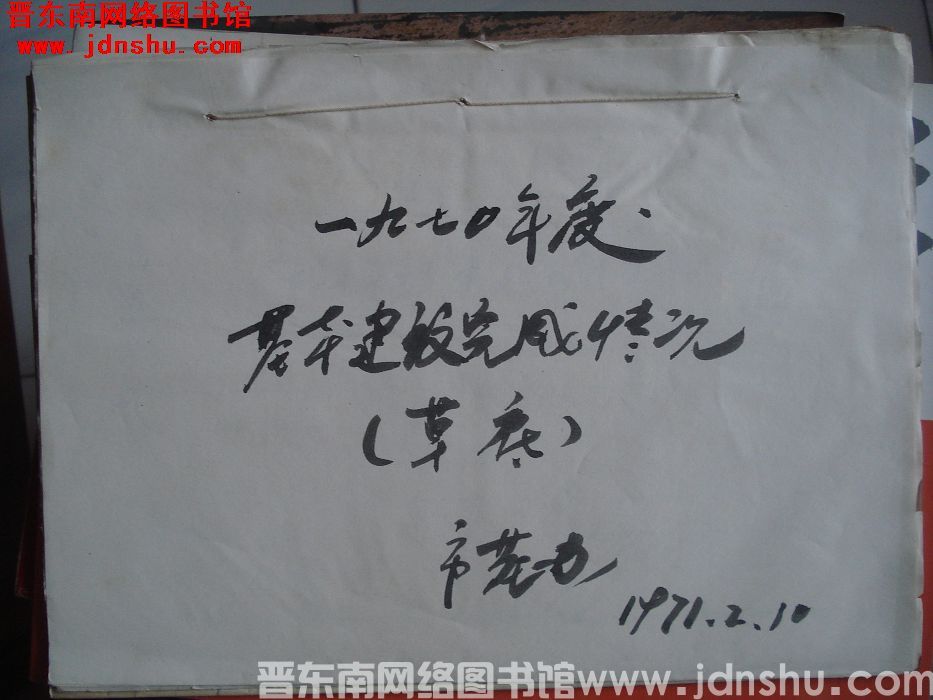 晋东南网络图书馆
www.jdnshu.com
一九七〇年度
基本建设完成情况
(草底)
市革办
1971.2.10
晋东南网络图书馆www.jdnshu.com